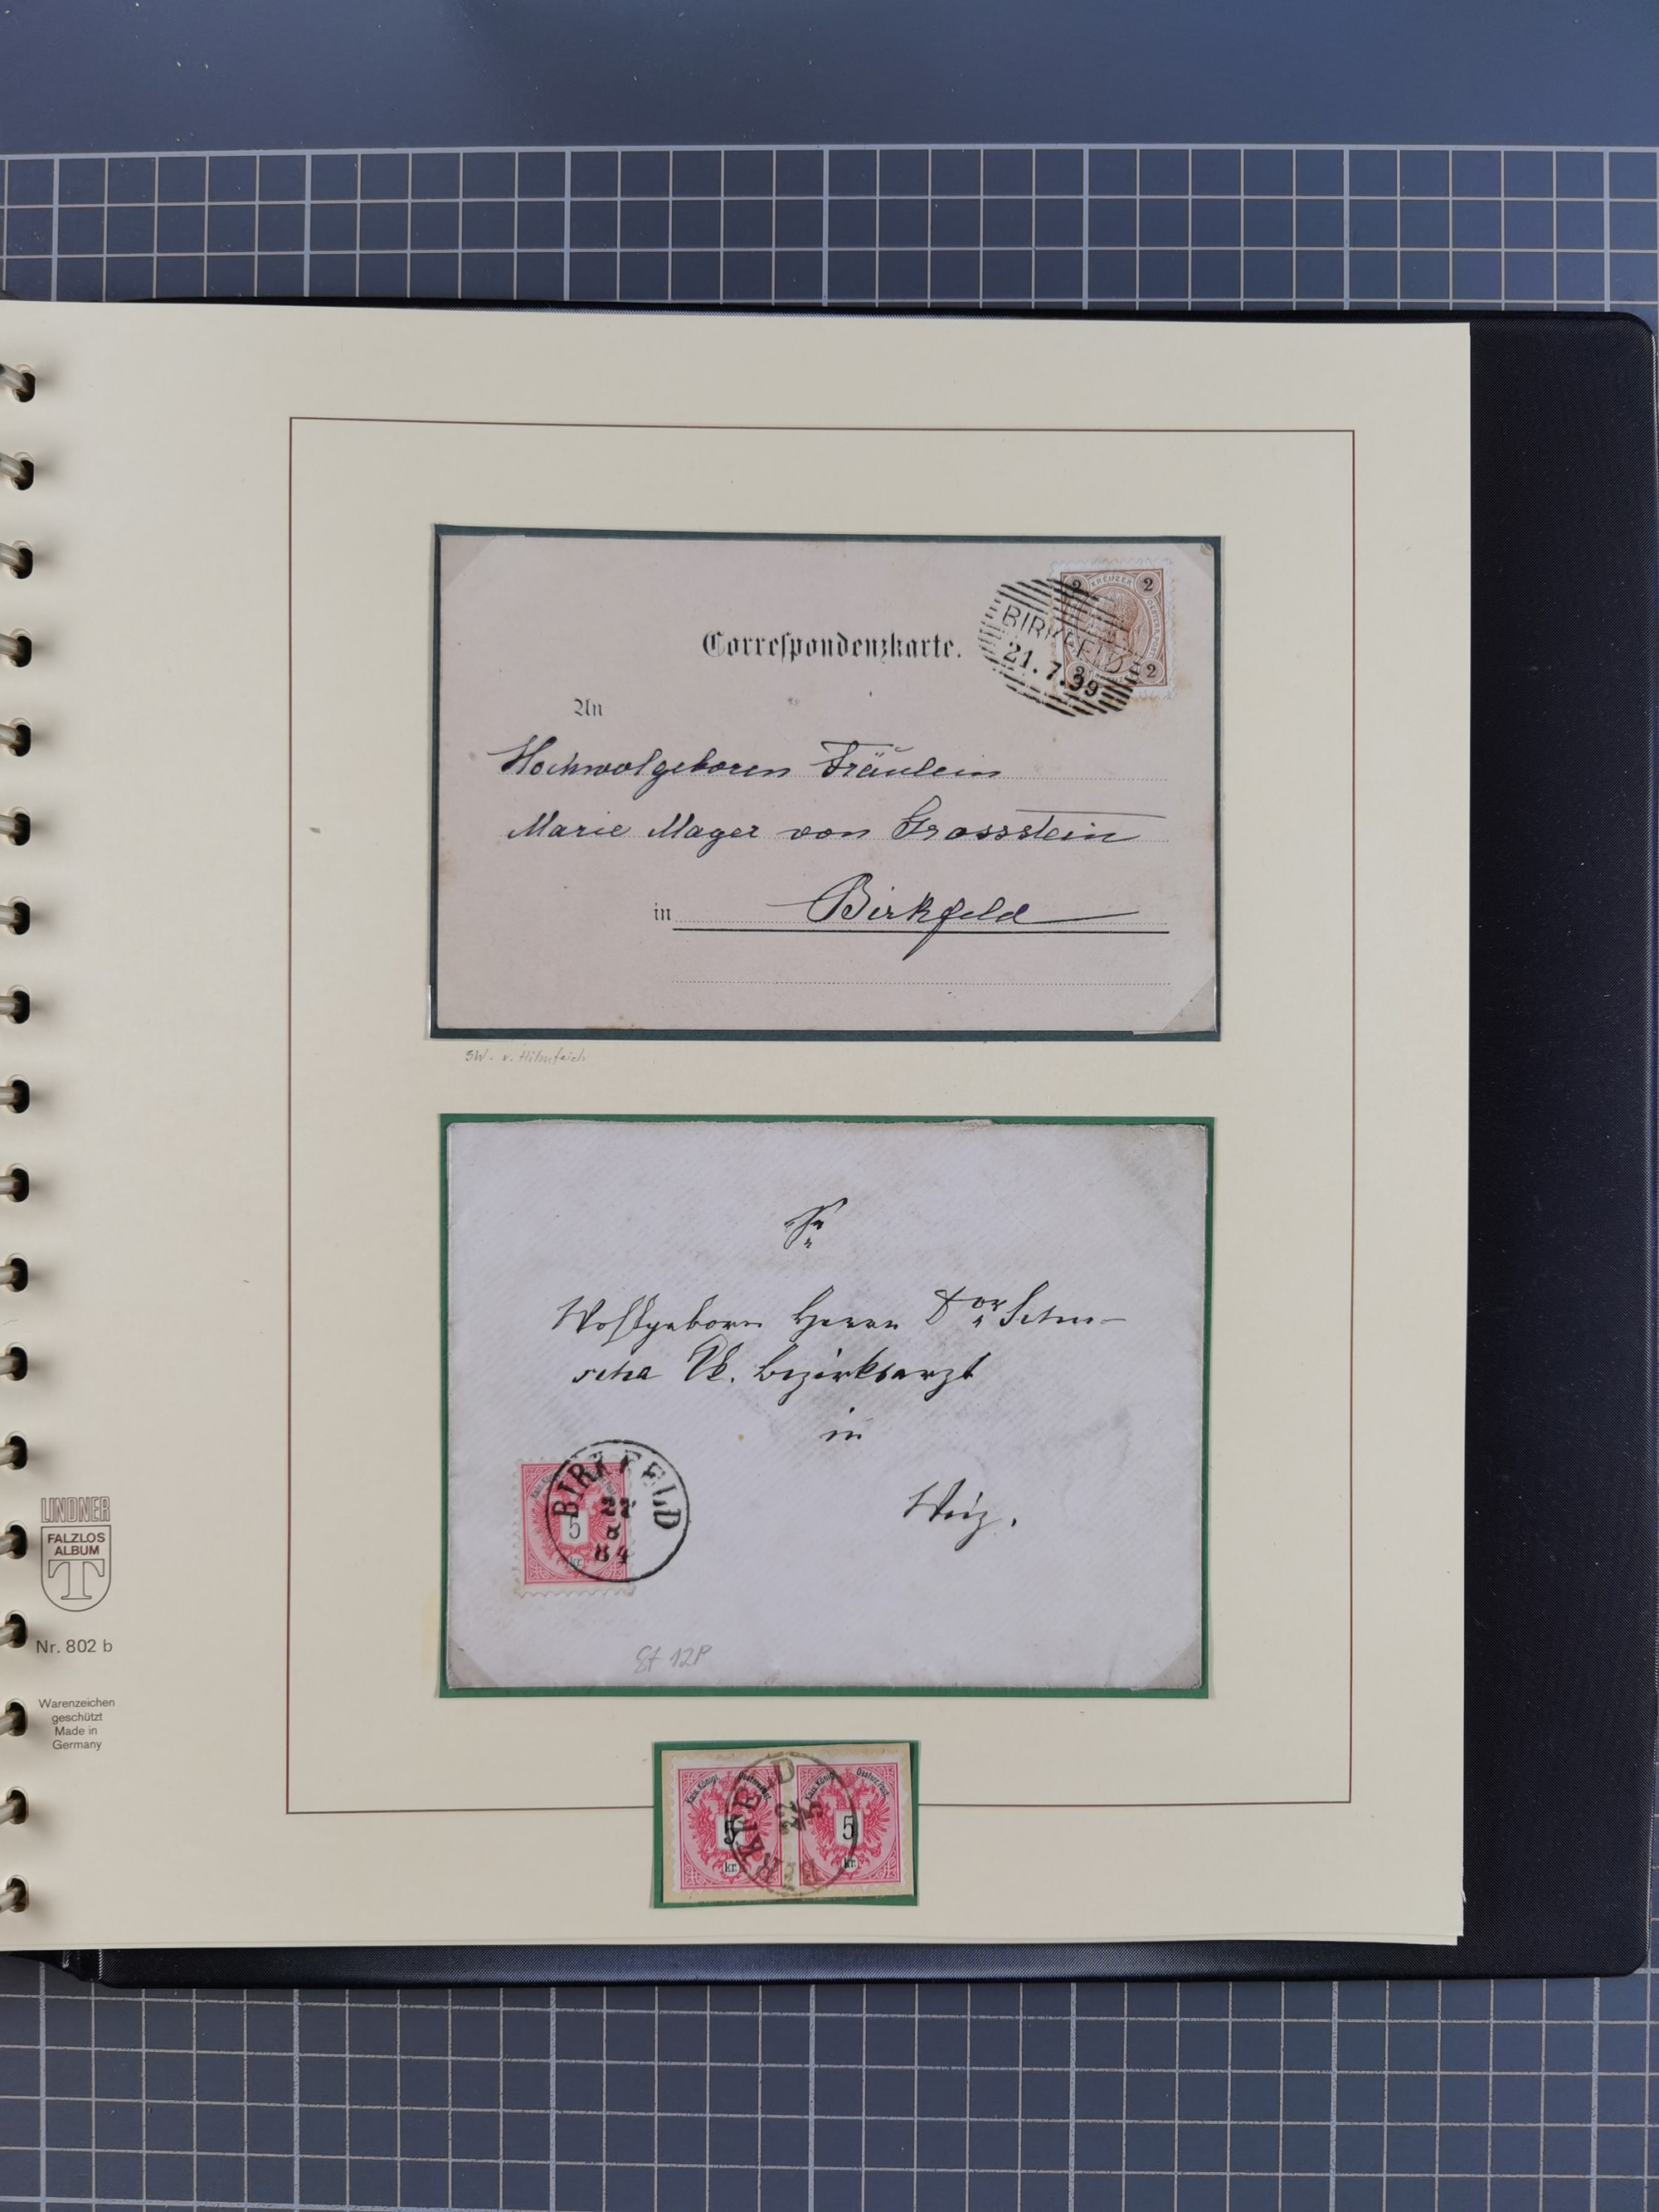 Correspondenzkarte.
2 KREUZER 2
2 2
BIRKFELD
21.7.99
An
Hochwolgeboren Fräulein
Marie Mager von Grossstein
in Birkfeld
SW. v. Hilmteich
Wohlgeborn Herrn
k. k. Bezirksarzt
in
Weiz.
BIRKFELD
84
5
kr.
LINDNER
FALZLOS
ALBUM
T
Nr. 802 b
Warenzeichen
geschützt
Made in
Germany
Kais. Königl. Oesterr. Post. Kais. Königl. Oesterr. Post.
BIRKFELD
5 5
kr. kr.